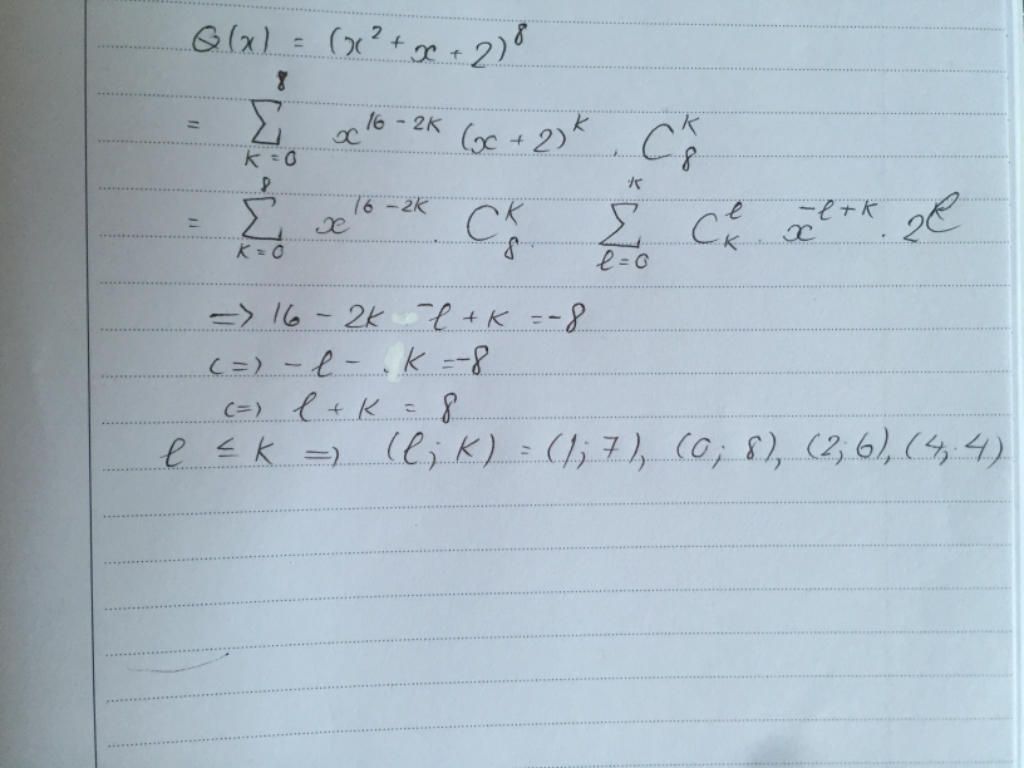 Q(x) = (x² + x + 2)⁸
= ∑_{k=0}^{8} x^{16-2k} (x+2)^k . C_8^k
= ∑_{k=0}^{8} x^{16-2k} . C_8^k . ∑_{l=0}^{k} C_k^l . x^{-l+k} . 2^l
=> 16 - 2k - l + k = -8
(=) - l - k = -8
(=) l + k = 8
l ≤ k => (l; k) = (1; 7), (0; 8), (2; 6), (4; 4)